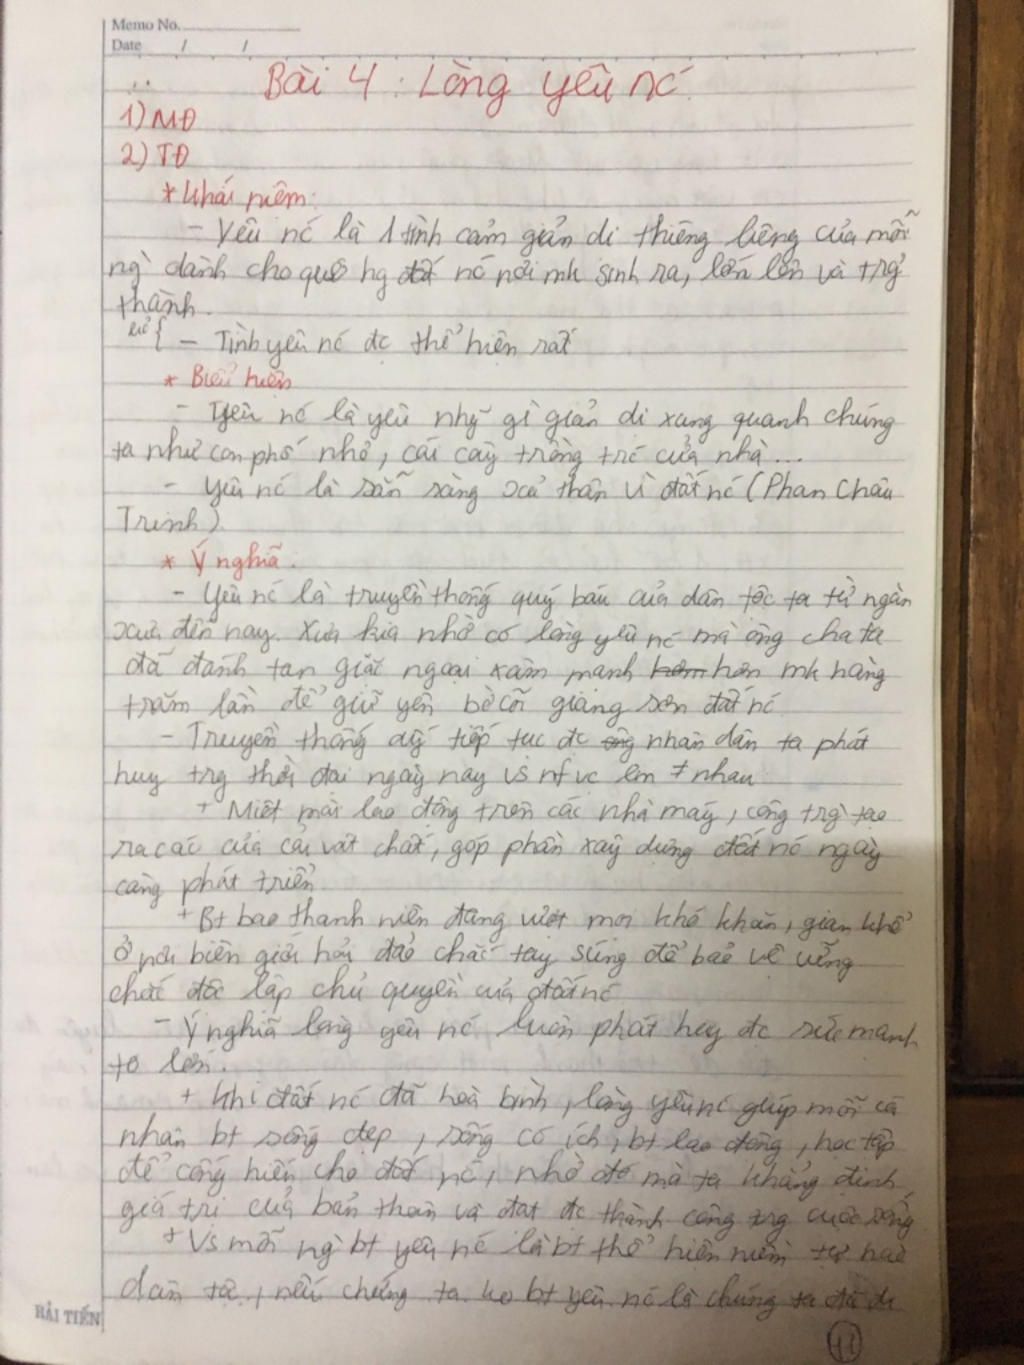 Memo No.
Date / /
Bài 4 : Lòng yêu nc
1) MĐ
2) TĐ
* Khái niệm:
- Yêu nc là 1 tình cảm giản dị thiêng liêng của mỗi
ng` dành cho quê hg đất nc nơi mk sinh ra, lớn lên và trg
thành.
- Tình yêu nc đc thể hiện rất
* Biểu hiện
- Yêu nc là yêu nhg~ gì giản dị xung quanh chúng
ta như con phố nhỏ, cái cây trồng trc cửa nhà...
- Yêu nc là sẵn sàng xả thân vì đất nc (Phan Châu
Trinh)
* Ý nghĩa:
- Yêu nc là truyền thống quý báu của dân tộc ta từ ngàn
xưa đến nay. Xưa kia nhờ có lòng yêu nc mà ông cha ta
đã đánh tan giặc ngoại xâm mạnh hơn hơn mk hàng
trăm lần để giữ yên bờ cõi giang sơn đất nc
- Truyền thống ấy tiếp tục đc ông nhân dân ta phát
huy trg thời đại ngày nay vs nf vc lm ≠ nhau
+ Miệt mài lao động trên các nhà máy, công trg` tạo
ra các của cải vật chất, góp phần xây dựng đất nc ngày
càng phát triển
+ Bt bao thanh niên đang vượt mọi khó khăn, gian khổ
ở nơi biên giới hải đảo chắc tay súng để bảo vệ vững
chắc độc lập chủ quyền của đất nc
- Ý nghĩa lòng yêu nc luôn phát huy đc sức mạnh
to lớn.
+ Khi đất nc đã hoà bình, lòng yêu nc giúp mỗi cá
nhân bt sống đẹp, sống có ích, bt lao động, học tập
để cống hiến cho đất nc, nhờ đó mà ta khẳng định
giá trị của bản thân và đạt đc thành công trg cuộc sống
+ Vs mỗi ng` bt yêu nc là bt thể hiện niềm tự hào
dân tộc, nếu chúng ta ko bt yêu nc là chúng ta đã đi
HẢI TIẾN
11